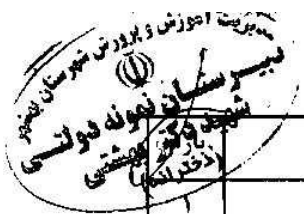 مدیریت آموزش و پرورش شهرستان بوشهر
دبیرستان نمونه دولتی
شهید دکتر بهشتی
(دخترانه)